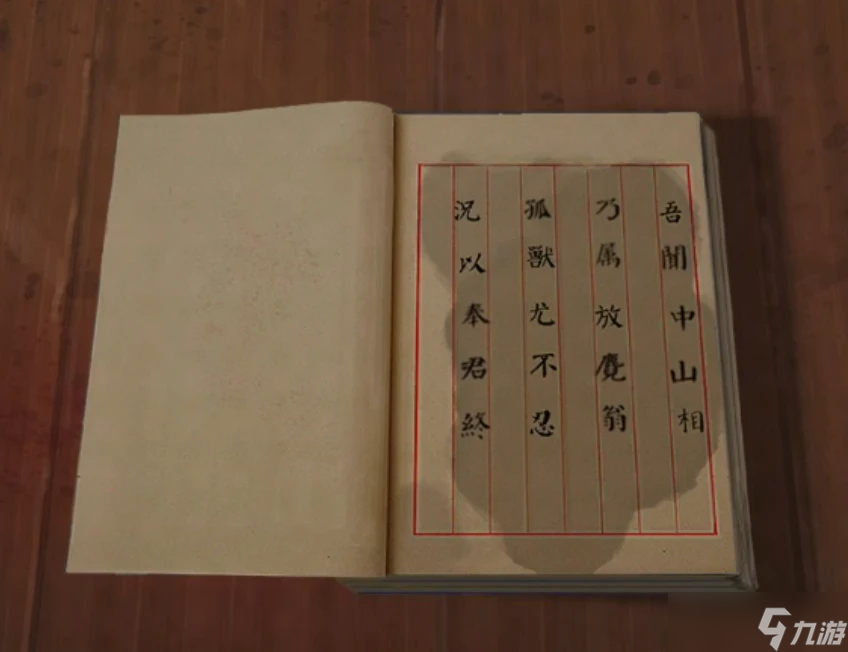 吾聞中山相
乃属放麑翁
孤獸尤不忍
況以奉君終
九游